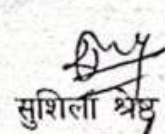 सुशिला श्रेष्ठ